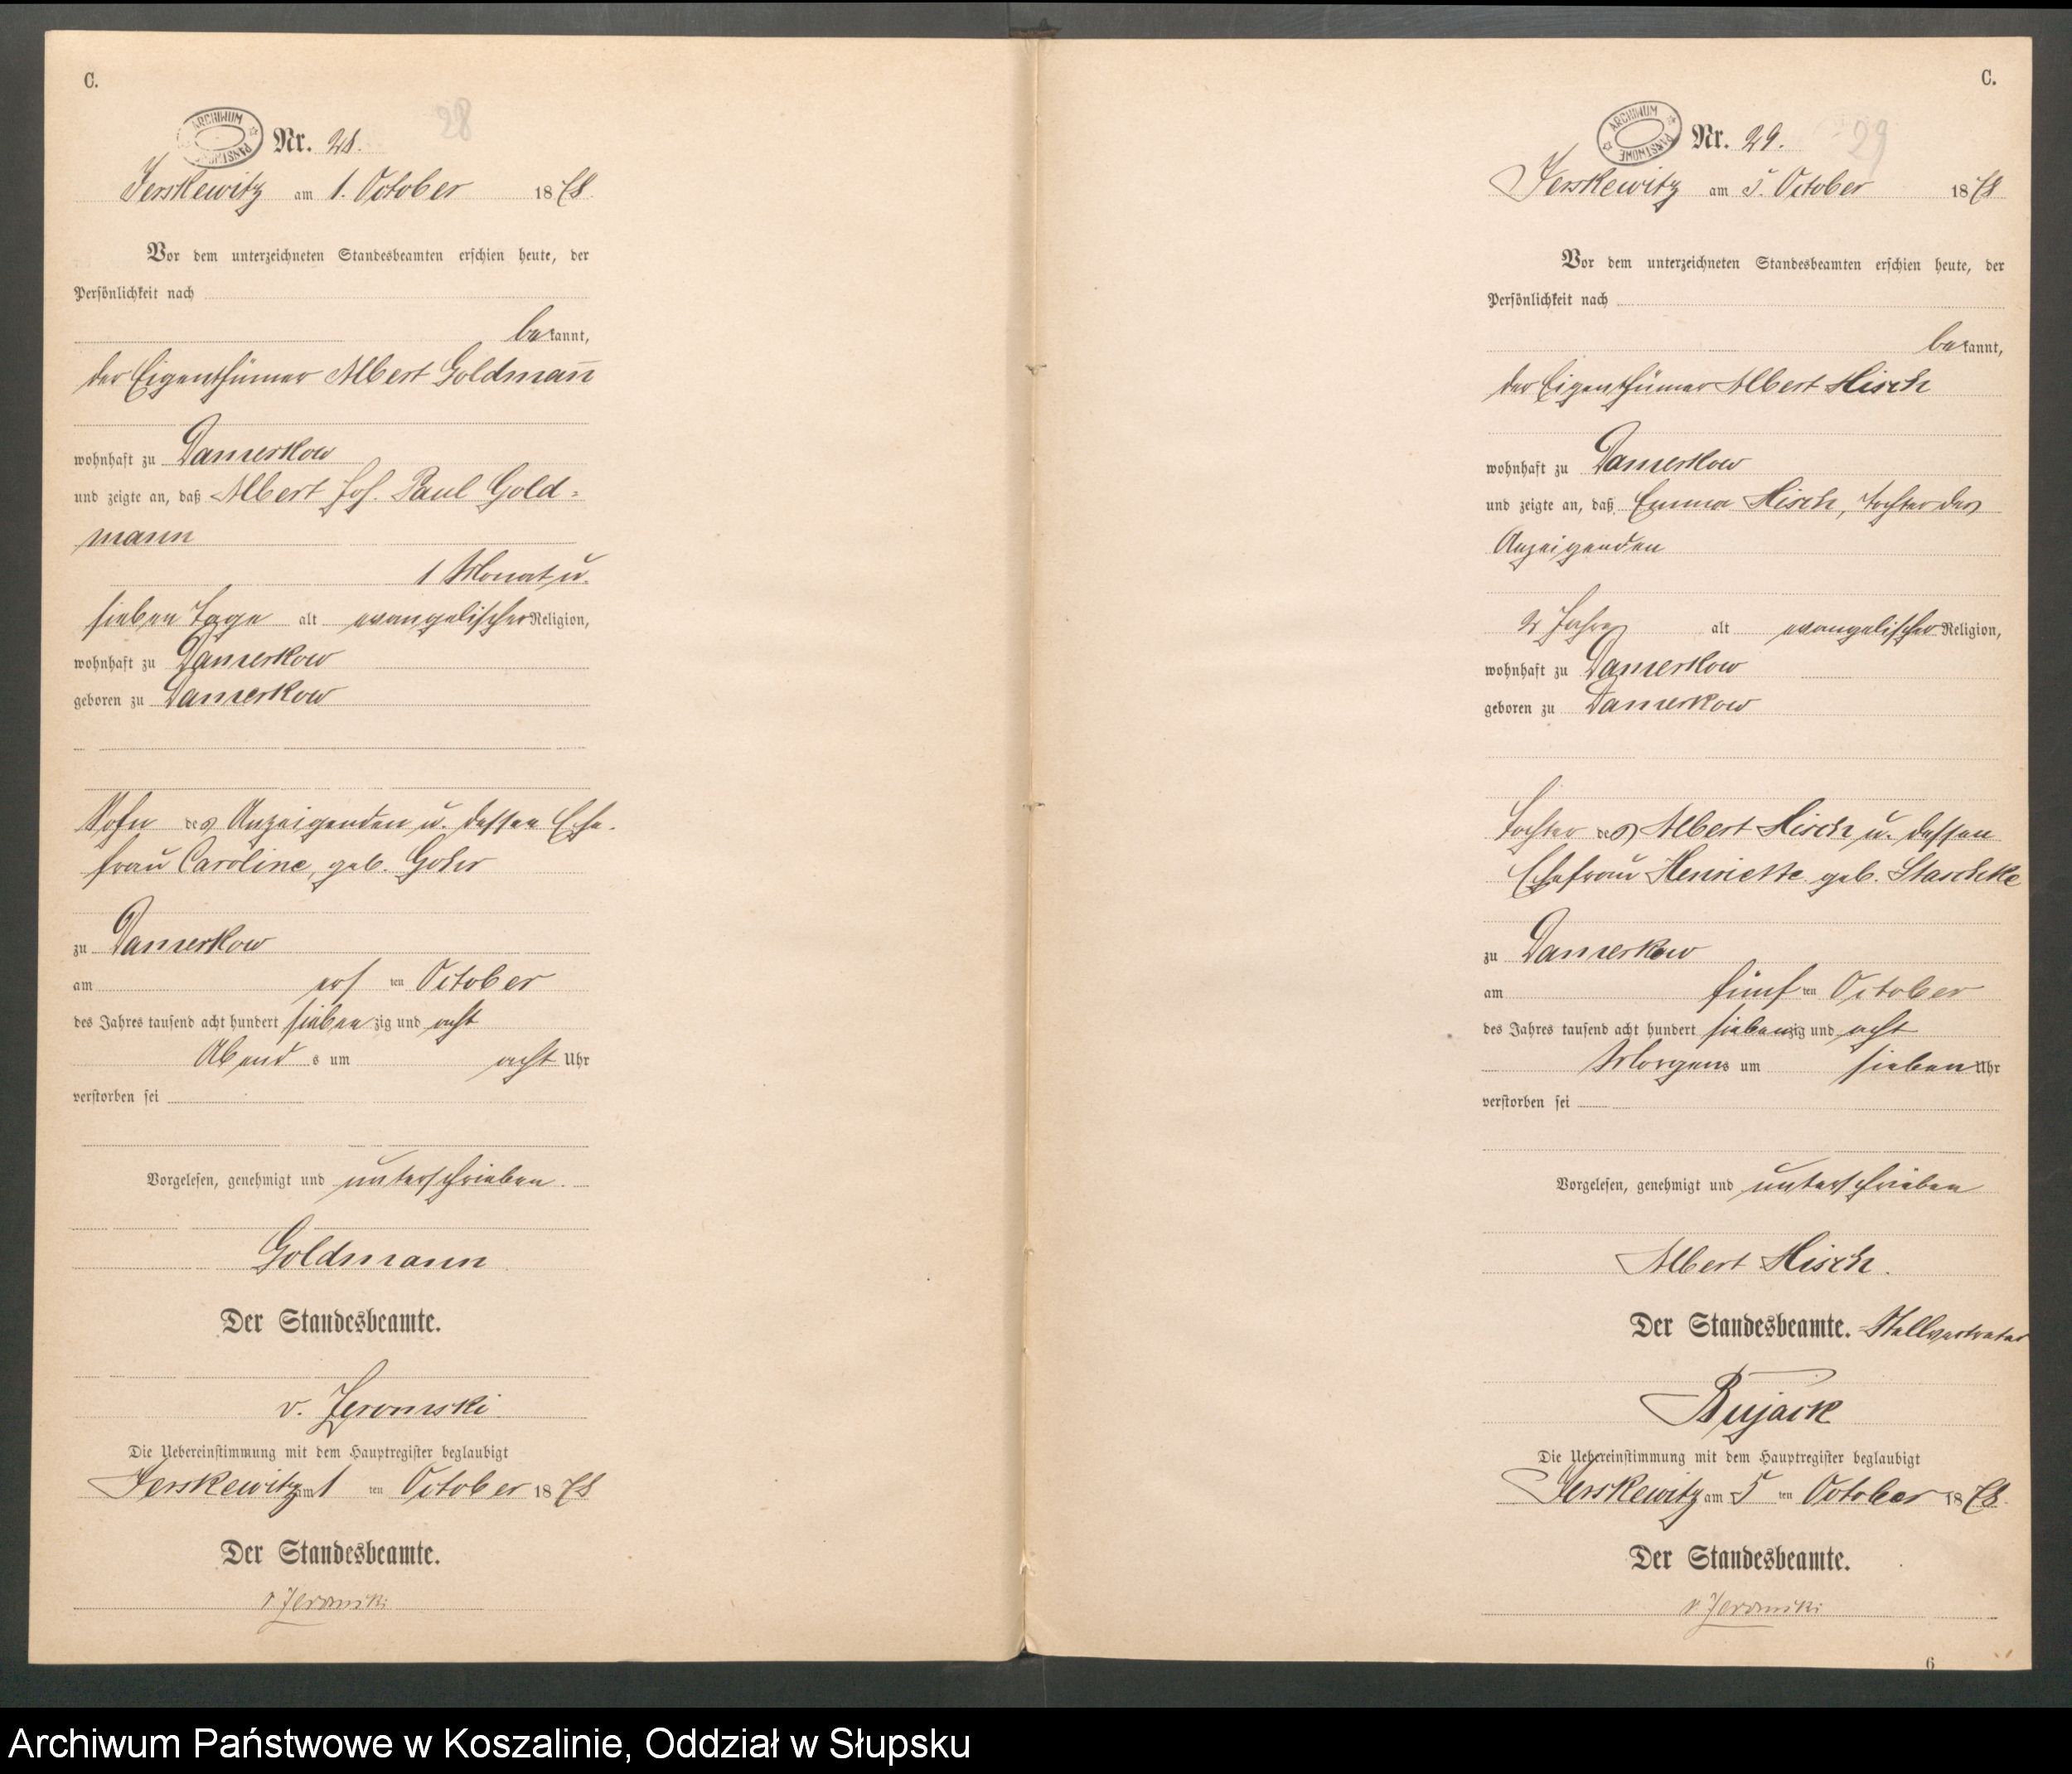 C.
ARCHIWUM PAŃSTWOWE
28
Nr. 28.
Jerskewitz am 1. October 1878.
Vor dem unterzeichneten Standesbeamten erschien heute, der
Persönlichkeit nach
bekannt,
der Eigenthümer Albert Goldmañ
wohnhaft zu Damerkow
und zeigte an, daß Albert Joh. Paul Gold-
mann
1 Monat u.
sieben Tage alt evangelischer Religion,
wohnhaft zu Damerkow
geboren zu Damerkow
Sohn des Anzeigenden u. dessen Ehe-
frau Caroline, geb.
zu Damerkow
am ersten October
des Jahres tausend acht hundert siebenzig und acht
Abends um acht Uhr
verstorben sei
Vorgelesen, genehmigt und unterschrieben.
Goldmann
Der Standesbeamte.
v. Jeromski
Die Uebereinstimmung mit dem Hauptregister beglaubigt
Jerskewitz am 1ten October 1878
Der Standesbeamte.
v Jeromski
C.
ARCHIWUM PAŃSTWOWE
29
Nr. 29.
Jerskewitz am 5. October 1878
Vor dem unterzeichneten Standesbeamten erschien heute, der
Persönlichkeit nach
bekannt,
der Eigenthümer Albert Hisch
wohnhaft zu Damerkow
und zeigte an, daß Emma Hisch, Tochter des
Anzeigenden
2 Jahre alt evangelischer Religion,
wohnhaft zu Damerkow
geboren zu Damerkow
Tochter des Albert Hisch u. dessen
Ehefrau Henriette geb. Staschke
zu Damerkow
am fünften October
des Jahres tausend acht hundert siebenzig und acht
Morgens um sieben Uhr
verstorben sei
Vorgelesen, genehmigt und unterschrieben
Albert Hisch.
Der Standesbeamte. Stellvertreter
Bujack
Die Uebereinstimmung mit dem Hauptregister beglaubigt
Jerskewitz am 5ten October 1878.
Der Standesbeamte.
v. Jeromski
6
Archiwum Państwowe w Koszalinie, Oddział w Słupsku